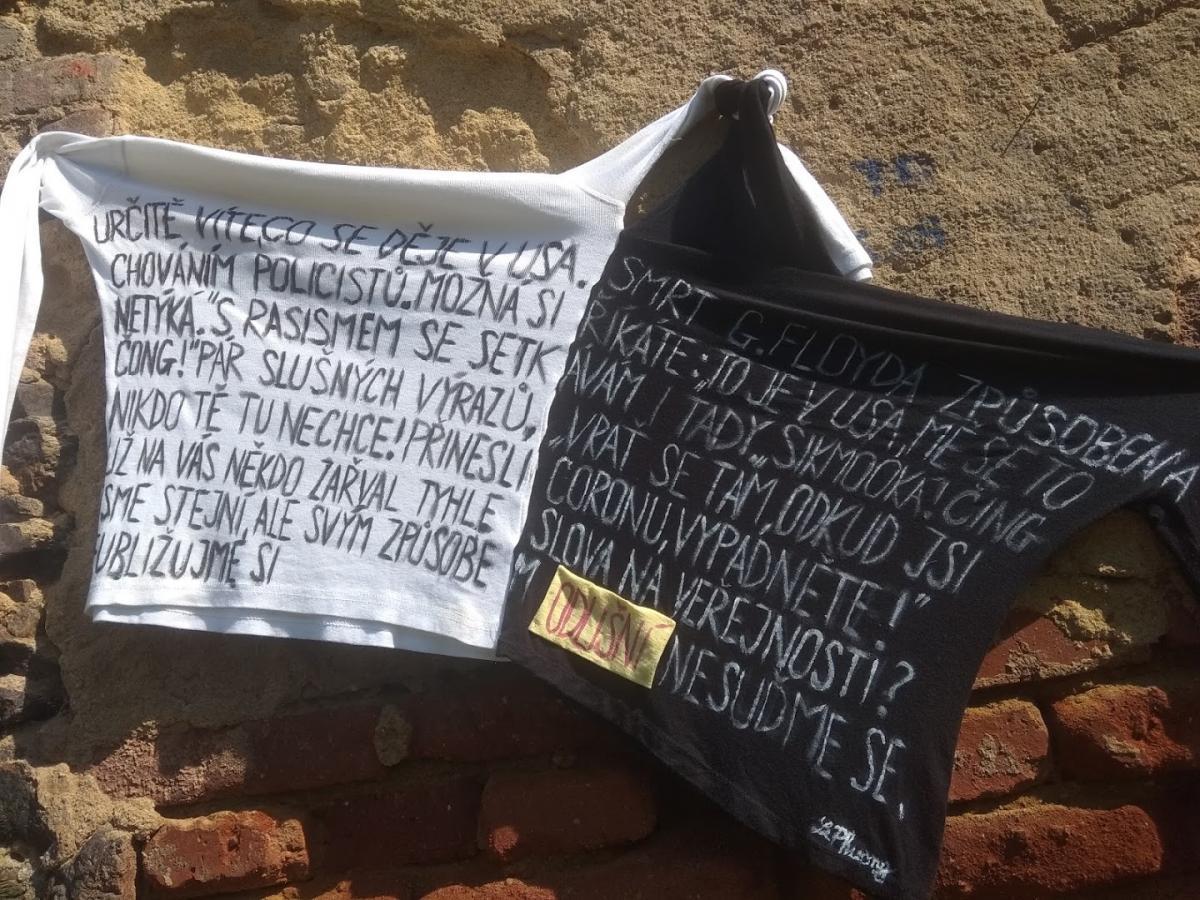 URČITĚ VÍTE,CO SE DĚJE V USA. SMRT G.FLOYDA ZPŮSOBENA
CHOVÁNÍM POLICISTŮ.MOŽNÁ SI ŘÍKÁTE:„TO JE V USA, MĚ SE TO
NETÝKÁ."S RASISMEM SE SETK ÁVÁM I TADY.„ŠIKMOOKÁ! ČING
ČONG!"PÁR SLUŠNÝCH VÝRAZŮ, „VRAŤ SE TAM,ODKUD JSI
NIKDO TĚ TU NECHCE!PŘINESLI CORONU,VYPADNĚTE!"
UŽ NA VÁS NĚKDO ZAŘVAL TYHLE SLOVA NA VEŘEJNOSTI?
SME STEJNÍ,ALE SVÝM ZPŮSOBE M ODLIŠNÍ NESUĎME SE,
UBLIŽUJME SI